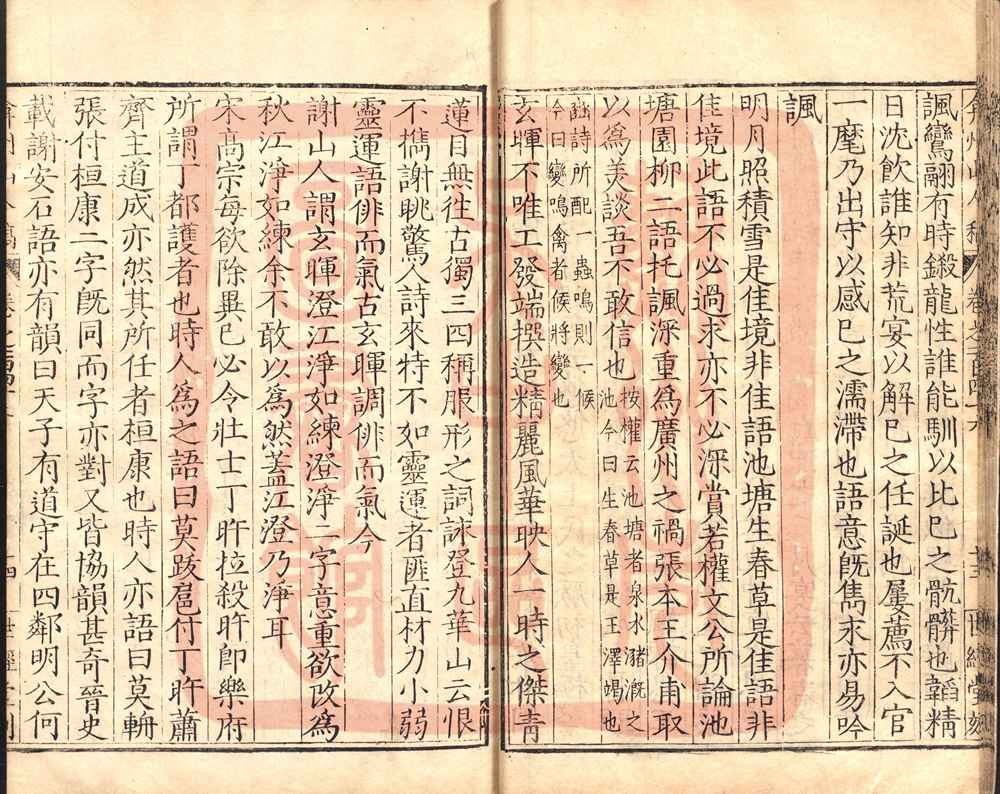 弇州山人稿 卷之一百四十六 十三 世經堂刻
諷鸞翮有時鎩龍性誰能馴以比巳之骯髒也韜精
日沈飲誰知非荒宴以解巳之任誕也屢薦不入官
一麾乃出守以感巳之濡滯也語意旣雋求亦易吟
諷
明月照積雪是佳境非佳語池塘生春草是佳語非
佳境此語不必過求亦不必深賞若權文公所論池
塘園柳二語托諷深重爲廣州之禍張本王介甫取
以爲美談吾不敢信也
按權云池塘者泉水瀦溉之
池今曰生春草是王澤竭也
豳詩所配一蟲鳴則一候
今曰變鳴禽者候將變也
玄暉不唯工發端撰造精麗風華映人一時之傑青
蓮目無往古獨三四稱服形之詞詠登九華山云恨
不擕謝眺驚人詩來特不如靈運者匪直材力小弱
靈運語俳而氣古玄暉調俳而氣今
謝山人謂玄暉澄江淨如練澄淨二字意重欲改爲
秋江淨如練余不敢以爲然蓋江澄乃淨耳
宋高宗每欲除異巳必令壯士丁旿拉殺旿卽樂府
所謂丁都護者也時人爲之語曰莫跋扈付丁旿蕭
齊主道成亦然其所任者桓康也時人亦語曰莫輈
張付桓康二字旣同而字亦對又皆協韻甚奇晉史
載謝安石語亦有韻曰天子有道守在四鄰明公何